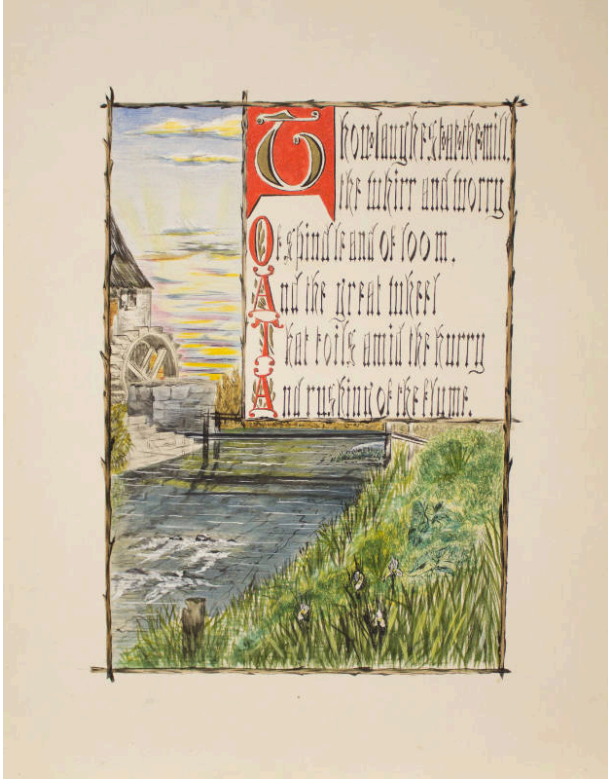 Thou laughest at the mill,
the whirr and worry
Of spindle and of loom,
And the great wheel
That toils amid the hurry
And rushing of the flume.